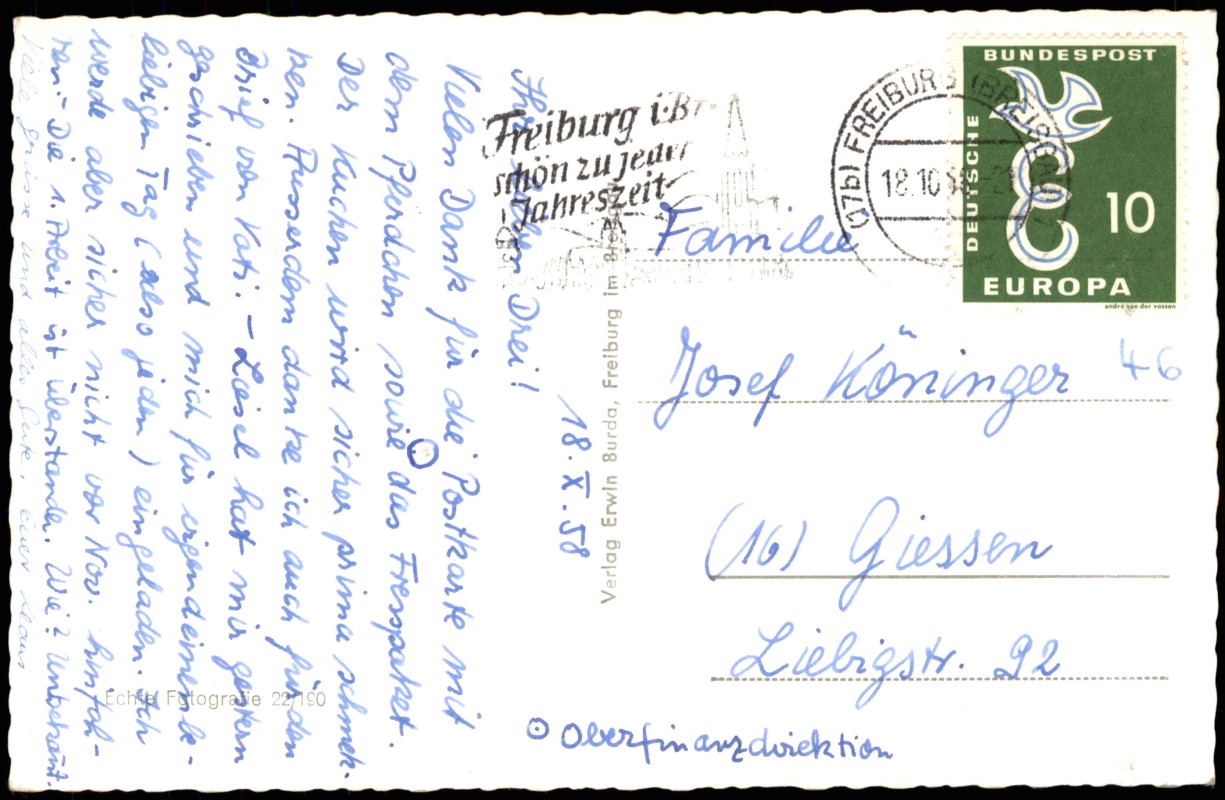 18.X.58
Ihr lieben Drei!
Vielen Dank für die Postkarte mit
dem Pferdchen sowie das Fresspaket.
Der Kuchen wird sicher prima schmek-
ken. Ausserdem danke ich auch für den
Brief von Kati. - Liesel hat mir gestern
geschrieben und mich für irgendeinen be-
liebigen Tag (also jeden) eingeladen. Ich
werde aber sicher nicht vor Nov. hinfah-
ren. - Die 1. Arbeit ist überstanden. Wie? Unbekannt.
Viele Grüsse und alles Gute, euer Klaus
Echte Fotografie 22/190
Verlag Erwin Burda, Freiburg im
Freiburg i. Br.
schön zu jeder
Jahreszeit
(17b) FREIBURG (BREISGAU)
18.10
BUNDESPOST
DEUTSCHE
10
EUROPA
andré van der vossen
Familie
Josef Köninger
46
(16) Giessen
Liebigstr. 92
⊙ Oberfinanzdirektion